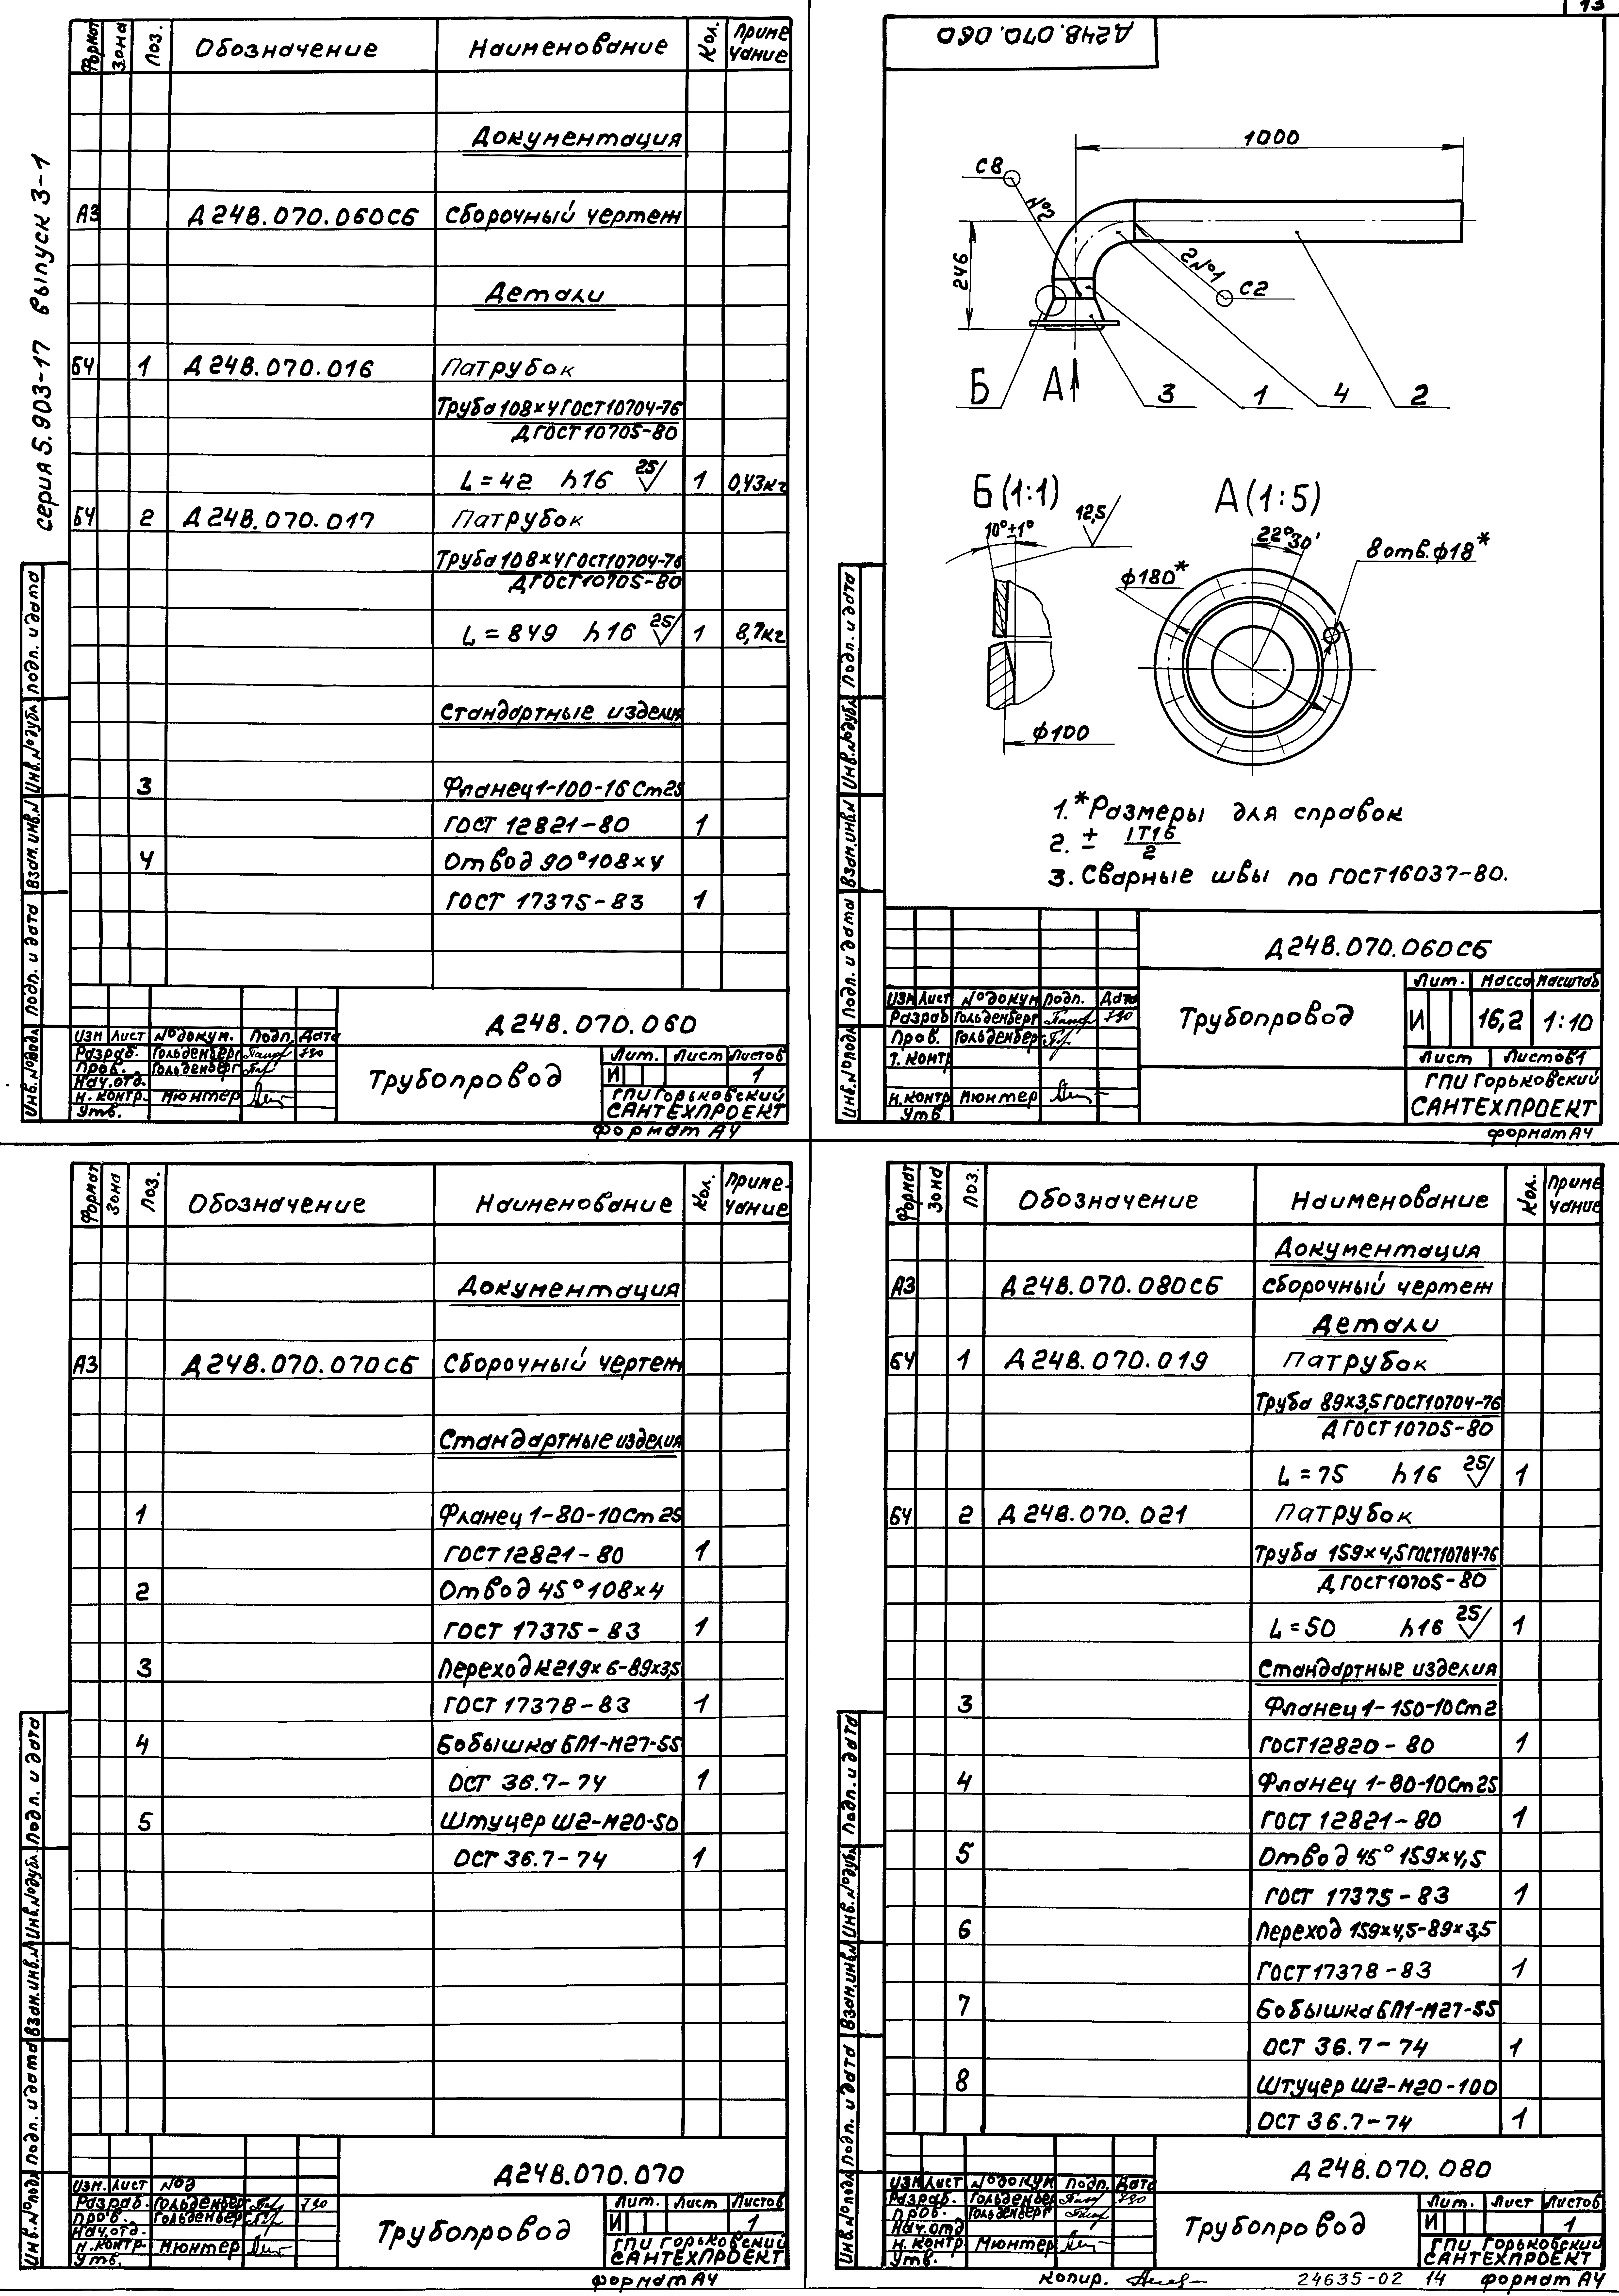 13
серия 5.903-17 выпуск 3-1
Формат Зона Поз. Обозначение Наименование Кол. Приме
чание
Документация
А3 Д24В.070.060СБ Сборочный чертеж
Детали
БЧ 1 Д24В.070.016 Патрубок
Труба 108×4 ГОСТ10704-76
Д ГОСТ 10705-80
L=42 h16 25 1 0,43кг
БЧ 2 Д24В.070.017 Патрубок
Труба 108×4 ГОСТ10704-76
Д ГОСТ 10705-80
L=849 h16 25 1 8,7кг
Стандартные изделия
3 Фланец 1-100-16 Ст25
ГОСТ 12821-80 1
4 Отвод 90°108×4
ГОСТ 17375-83 1
Инв.№подл Подп. и дата Взам.инв.№ Инв.№дубл. Подп. и дата
Д24В.070.060
Изм Лист №докум. Подп. Дата
Разраб. Гольденберг
Пров. Гольденберг
Нач.отд.
Н.контр. Мюнтер
Утв.
Трубопровод
Лит. Лист Листов
И 1
ГПИ Горьковский
САНТЕХПРОЕКТ
Формат А4
Д24В.070.060
1000
С8
№2
246
2№1
С2
Б А 3 1 4 2
Б(1:1) А(1:5)
10°±1° 12,5
22°30'
8отв.ф18*
ф180*
ф100
1.*Размеры для справок
2. ± IT16
2
3. Сварные швы по ГОСТ16037-80.
Инв.№подл Подп. и дата Взам.инв.№ Инв.№дубл Подп. и дата
Д24В.070.060СБ
Изм Лист №докум Подп. Дата
Разраб Гольденберг
Пров. Гольденберг
Т.контр
Н.контр Мюнтер
Утв
Трубопровод
Лит. Масса Масштаб
И 16,2 1:10
Лист Листов1
ГПИ Горьковский
САНТЕХПРОЕКТ
формат А4
Формат Зона Поз. Обозначение Наименование Кол. Приме-
чание
Документация
А3 Д24В.070.070СБ Сборочный чертеж
Стандартные изделия
1 Фланец 1-80-10Ст25
ГОСТ 12821-80 1
2 Отвод 45°108×4
ГОСТ 17375-83 1
3 Переход К219×6-89×3,5
ГОСТ 17378-83 1
4 Бобышка БП1-М27-55
ОСТ 36.7-74 1
5 Штуцер Ш2-М20-50
ОСТ 36.7-74 1
Инв.№подл Подп. и дата Взам.инв.№ Инв.№дубл. Подп. и дата
Д24В.070.070
Изм. Лист №д
Разраб. Гольденберг
Пров. Гольденберг
Нач.отд.
Н.контр. Мюнтер
Утв.
Трубопровод
Лит. Лист Листов
И 1
ГПИ Горьковский
САНТЕХПРОЕКТ
формат А4
Формат Зона Поз. Обозначение Наименование Кол. Приме
чание
Документация
А3 Д24В.070.080СБ Сборочный чертеж
Детали
БЧ 1 Д24В.070.019 Патрубок
Труба 89×3,5 ГОСТ10704-76
Д ГОСТ 10705-80
L=75 h16 25 1
БЧ 2 Д24В.070.021 Патрубок
Труба 159×4,5 ГОСТ10704-76
Д ГОСТ10705-80
L=50 h16 25 1
Стандартные изделия
3 Фланец 1-150-10Ст2
ГОСТ12820-80 1
4 Фланец 1-80-10Ст25
ГОСТ 12821-80 1
5 Отвод 45° 159×4,5
ГОСТ 17375-83 1
6 Переход 159×4,5-89×3,5
ГОСТ17378-83 1
7 Бобышка БП1-М27-55
ОСТ 36.7-74 1
8 Штуцер Ш2-М20-100
ОСТ 36.7-74 1
Инв.№подл Подп. и дата Взам.инв.№ Инв.№дубл. Подп. и дата
Д24В.070.080
Изм Лист №докум Подп. Дата
Разраб. Гольденберг
Пров. Гольденберг
Нач.отд
Н.контр Мюнтер
Утв.
Трубопровод
Лит. Лист Листов
И 1
ГПИ Горьковский
САНТЕХПРОЕКТ
Копир. 24635-02 14 формат А4